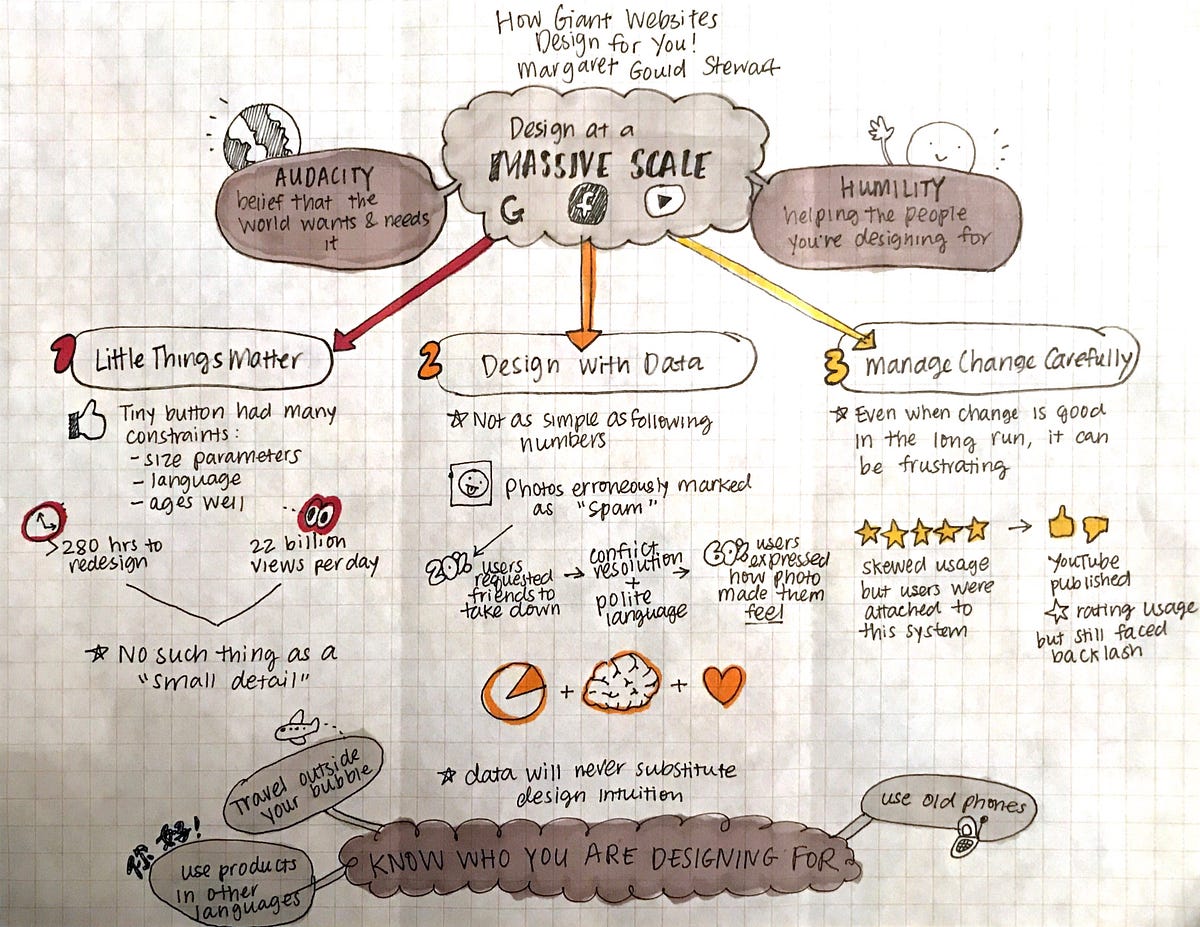 How Giant Websites
Design for You!
Margaret Gould Stewart
Design at a
MASSIVE SCALE
G f
AUDACITY
belief that the
world wants & needs
it
HUMILITY
helping the people
you're designing for
1 Little Things Matter
Tiny button had many
constraints:
- size parameters
- language
- ages well
280 hrs to
redesign
22 billion
views per day
☆ No such thing as a
"small detail"
2 Design with Data
☆ Not as simple as following
numbers
Photos erroneously marked
as "spam"
20% users
requested
friends to
take down
→ conflict
resolution
+
polite
language
→ 60% users
expressed
how photo
made them
feel
+ +
☆ data will never substitute
design intuition
3 Manage Change Carefully
☆ Even when change is good
in the long run, it can
be frustrating
★★★★★ →
skewed usage
but users were
attached to
this system
YouTube
published
☆ rating usage
but still faced
backlash
Travel outside
your bubble
你好!
use products
in other
languages
KNOW WHO YOU ARE DESIGNING FOR
use old phones